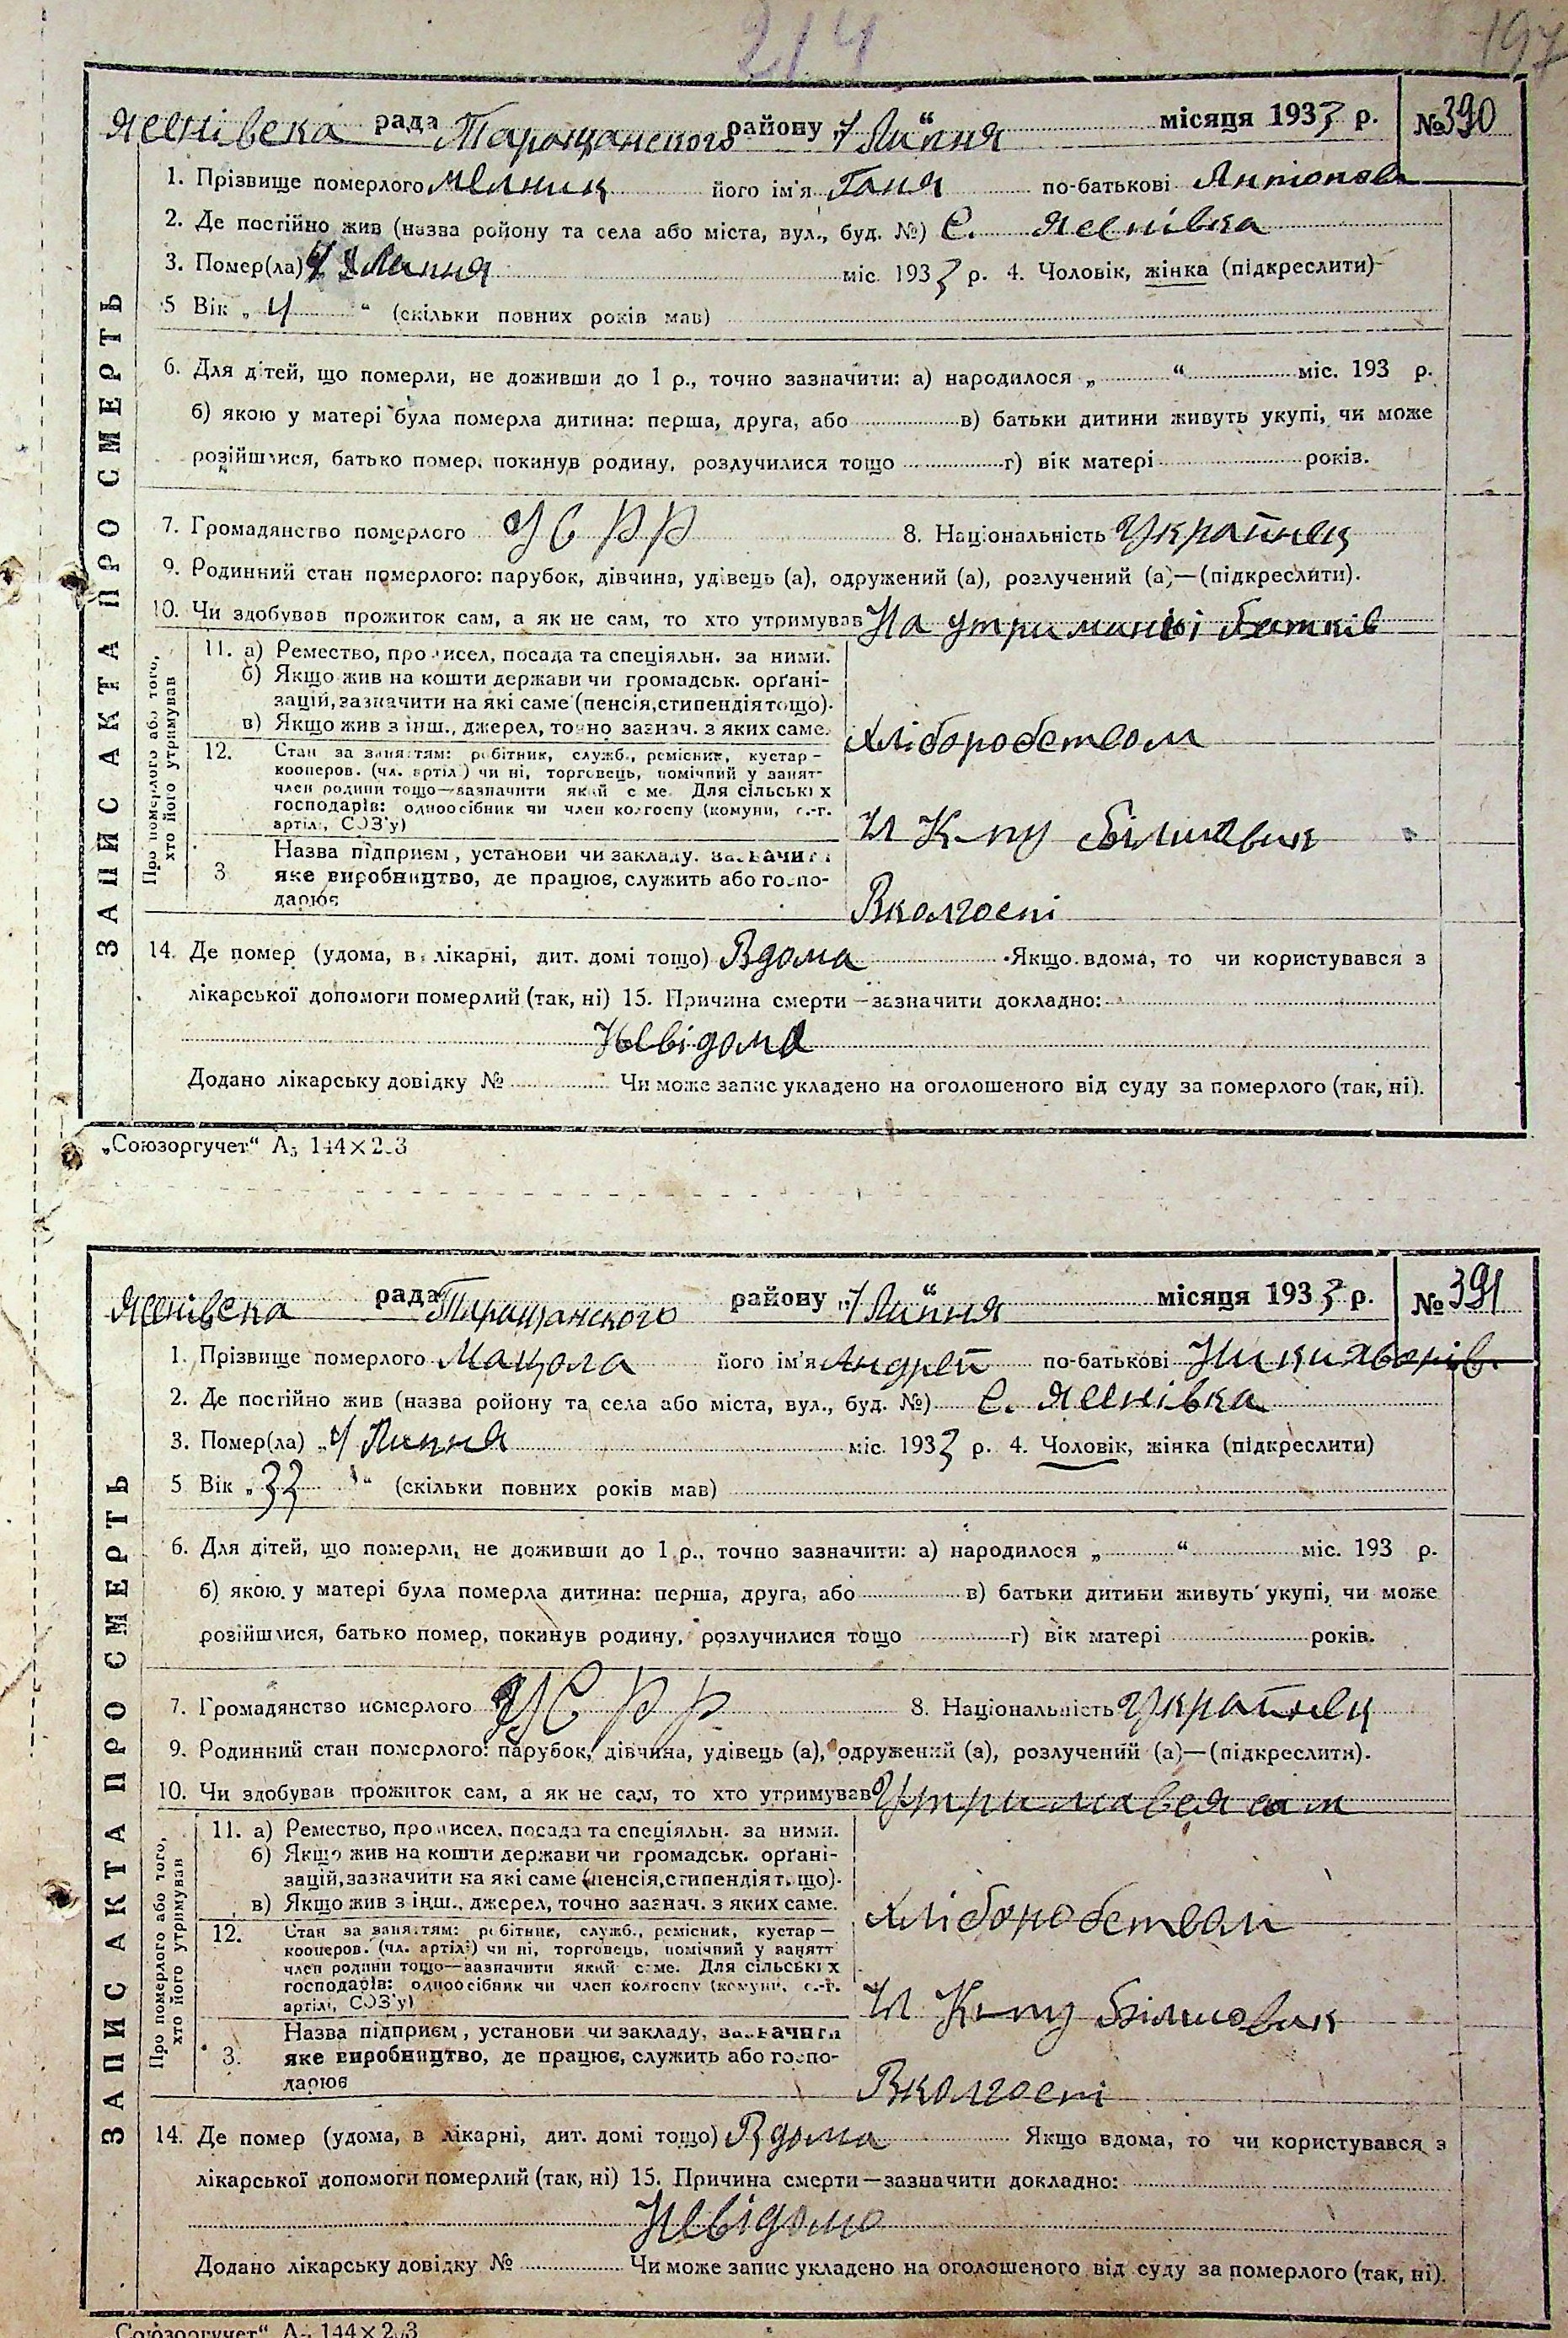 214
197
Яснівска рада Таращанского району „4 Липня“ місяця 1933 р. № 390
1. Прізвище померлого Мелник його ім'я Ганя по-батькові Антонов
2. Де постійно жив (назва району та села або міста, вул., буд. №) С. Яснівка
3. Помер(ла) 4 Липня міс. 1933 р. 4. Чоловік, жінка (підкреслити)
5 Вік „4“ (скільки повних років мав)
6. Для дітей, що померли, не доживши до 1 р., точно зазначити: а) народилося „ “ міс. 193 р.
б) якою у матері була померла дитина: перша, друга, або в) батьки дитини живуть укупі, чи може
розійшлися, батько помер, покинув родину, розлучилися тощо г) вік матері років.
7. Громадянство померлого УСРР 8. Національність Украйнец
9. Родинний стан померлого: парубок, дівчина, удівець (а), одружений (а), розлучений (а)—(підкреслити).
10. Чи здобував прожиток сам, а як не сам, то хто утримував На утриманні батків
ЗАПИС АКТА ПРО СМЕРТЬ
Про померлого або того,
хто його утримував
11. а) Ремество, промисел, посада та спеціяльн. за ними.
б) Якщо жив на кошти держави чи громадськ. орґані-
зацій, зазначити на які саме (пенсія, стипендія тощо).
в) Якщо жив з інш., джерел, точно зазнач. з яких саме.
Хліборобством
12. Стан за заняттям: робітник, служб., ремісник, кустар—
кооперов. (чл. артілі) чи ні, торговець, помічний у занятт
член родини тощо—зазначити який саме. Для сільських
господарів: одноосібник чи член колгоспу (комуни, с.-г.
артілі, СОЗ'у)
Чл К-пу Білшовик
Назва підприєм, установи чи закладу, зазначити
3 яке виробництво, де працює, служить або госпо-
дарює
Вколгоспі
14. Де помер (удома, в лікарні, дит. домі тощо) Вдома Якщо вдома, то чи користувався з
лікарської допомоги померлий (так, ні) 15. Причина смерти—зазначити докладно:
Невідома
Додано лікарську довідку № Чи може запис укладено на оголошеного від суду за померлого (так, ні).
„Союзоргучет“ А5 144×203
Яснівска рада Таращанского району „4 Липня“ місяця 1933 р. № 391
1. Прізвище померлого Мацола його ім'я Андрей по-батькові
2. Де постійно жив (назва району та села або міста, вул., буд. №) С. Яснівка
3. Помер(ла) „4 Липня міс. 1933 р. 4. Чоловік, жінка (підкреслити)
5 Вік „33“ (скільки повних років мав)
6. Для дітей, що померли, не доживши до 1 р., точно зазначити: а) народилося „ “ міс. 193 р.
б) якою у матері була померла дитина: перша, друга, або в) батьки дитини живуть укупі, чи може
розійшлися, батько помер, покинув родину, розлучилися тощо г) вік матері років.
7. Громадянство померлого УСРР 8. Національність Украйнец
9. Родинний стан померлого: парубок, дівчина, удівець (а), одружений (а), розлучений (а)—(підкреслити).
10. Чи здобував прожиток сам, а як не сам, то хто утримував Утримався сам
ЗАПИС АКТА ПРО СМЕРТЬ
Про померлого або того,
хто його утримував
11. а) Ремество, промисел, посада та спеціяльн. за ними.
б) Якщо жив на кошти держави чи громадськ. орґані-
зацій, зазначити на які саме (пенсія, стипендія тощо).
в) Якщо жив з інш., джерел, точно зазнач. з яких саме.
Хліборобством
12. Стан за заняттям: робітник, служб., ремісник, кустар—
кооперов. (чл. артілі) чи ні, торговець, помічний у занятт
член родини тощо—зазначити який саме. Для сільських
господарів: одноосібник чи член колгоспу (комуни, с.-г.
артілі, СОЗ'у)
Чл К-пу Білшовик
Назва підприєм, установи чи закладу, зазначити
3. яке виробництво, де працює, служить або госпо-
дарює
Вколгоспі
14. Де помер (удома, в лікарні, дит. домі тощо) Вдома Якщо вдома, то чи користувався з
лікарської допомоги померлий (так, ні) 15. Причина смерти—зазначити докладно:
Невідомо
Додано лікарську довідку № Чи може запис укладено на оголошеного від суду за померлого (так, ні).
Союзоргучет“ А5 144×203